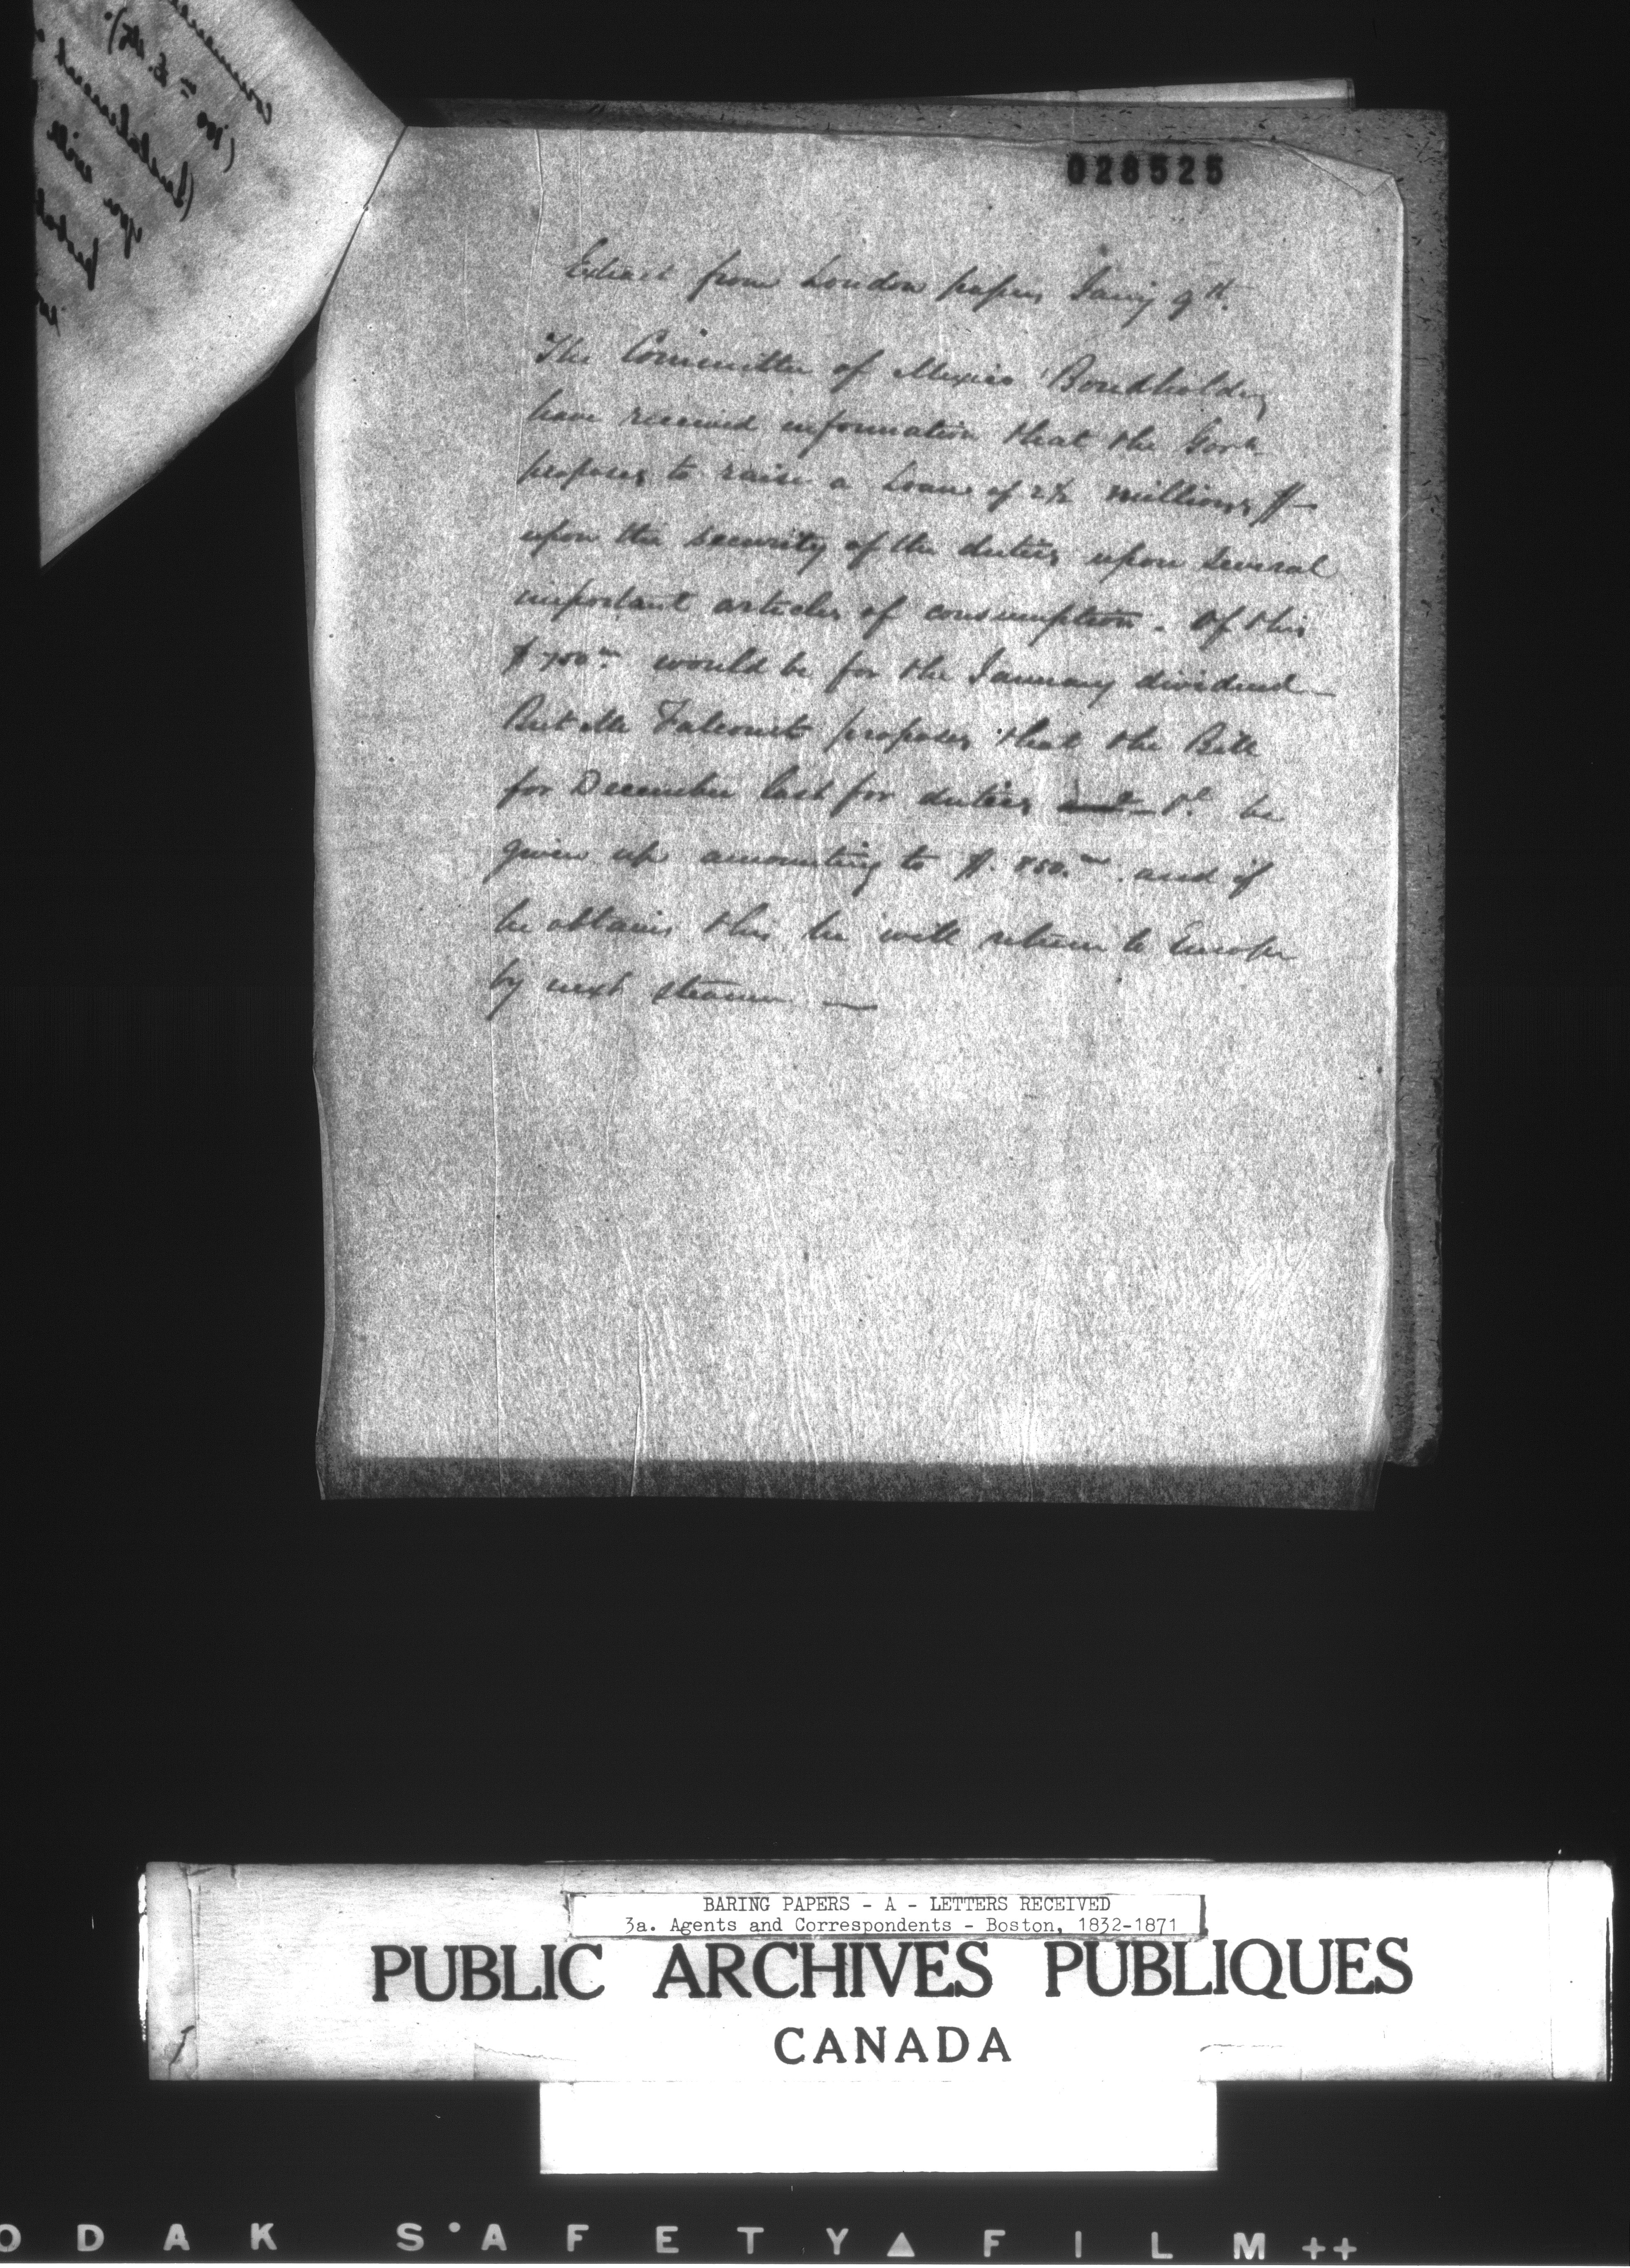 028525
Extract from London papers Jany 9th.
The Committee of Mexico Bondholders
have received information that the Govt
proposes to raise a Loan of 2½ millions $
upon the security of the duties upon several
important articles of consumption. Of this
$700m would be for the January dividend
But Mr Falconnet proposes that the Bill
for December last for duties shd. be
given up amounting to $.850.m and if
he obtains this he will return to Europe
by next steamer —
BARING PAPERS - A - LETTERS RECEIVED
3a. Agents and Correspondents - Boston, 1832-1871
PUBLIC ARCHIVES PUBLIQUES
CANADA
ODAK SAFETY FILM ++